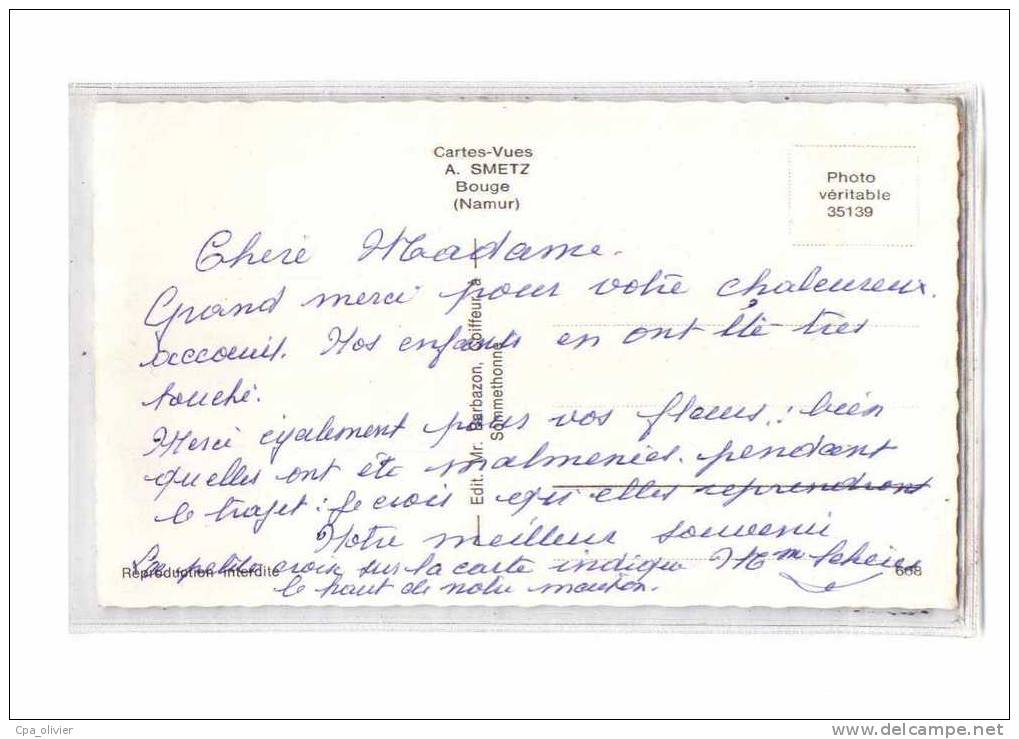 Cartes-Vues
A. SMETZ
Bouge
(Namur)
Photo
véritable
35139
Chère Madame.
Grand merci pour votre chaleureux.
accœuil. Nos enfants en ont été très
touché.
Merci également pour vos fleurs; bien
quelles ont été malmenées. pendant
le trajet: Je crois qu'elles reprendront
Notre meilleur souvenir
La petite croix sur la carte indique Mm
le haut de notre maison.
Edit. Mr. Barbazon, Coiffeur à
Sommethonne
Reproduction interdite
608
Cpa_olivier
delcampe.net